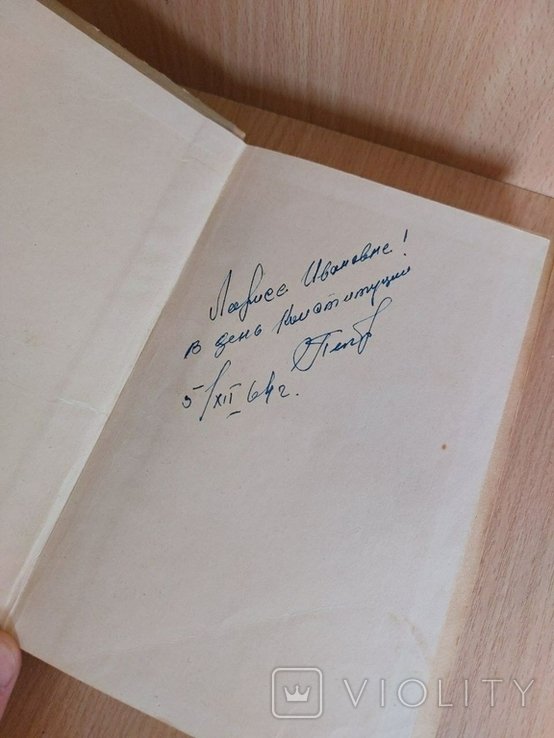 Ларисе Ивановне!
в день Конституции
5/XII 64г.
VIOLITY